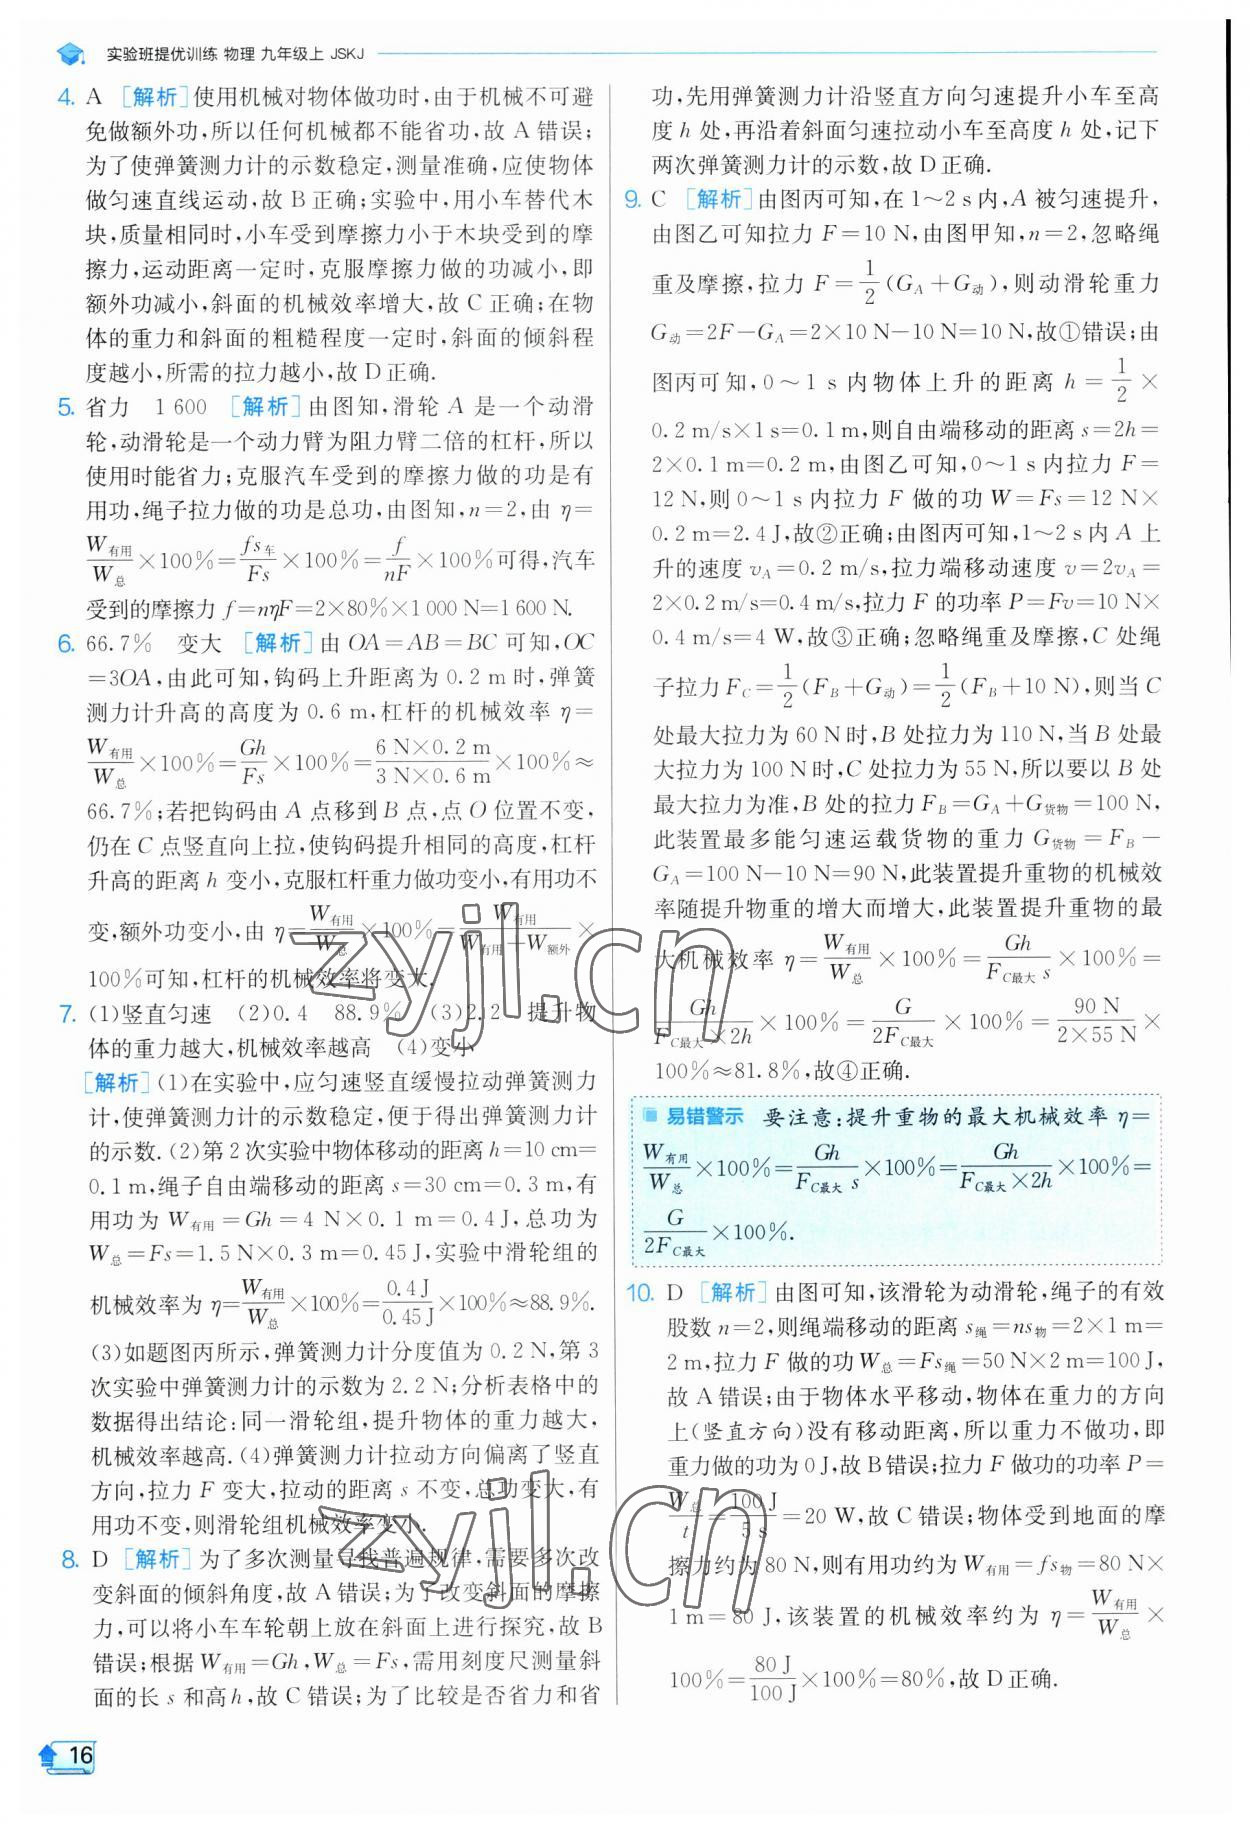 实验班提优训练 物理 九年级上 JSKJ
4. A [解析]使用机械对物体做功时,由于机械不可避
免做额外功,所以任何机械都不能省功,故 A 错误;
为了使弹簧测力计的示数稳定,测量准确,应使物体
做匀速直线运动,故 B 正确;实验中,用小车替代木
块,质量相同时,小车受到摩擦力小于木块受到的摩
擦力,运动距离一定时,克服摩擦力做的功减小,即
额外功减小,斜面的机械效率增大,故 C 正确;在物
体的重力和斜面的粗糙程度一定时,斜面的倾斜程
度越小,所需的拉力越小,故 D 正确.
5. 省力 1 600 [解析]由图知,滑轮 A 是一个动滑
轮,动滑轮是一个动力臂为阻力臂二倍的杠杆,所以
使用时能省力;克服汽车受到的摩擦力做的功是有
用功,绳子拉力做的功是总功,由图知,n=2,由 η=
W有用/W总×100%=fs车/Fs×100%=f/nF×100%可得,汽车
受到的摩擦力 f=nηF=2×80%×1 000 N=1 600 N.
6. 66.7% 变大 [解析]由 OA=AB=BC 可知,OC
=3OA,由此可知,钩码上升距离为 0.2 m 时,弹簧
测力计升高的高度为 0.6 m,杠杆的机械效率 η=
W有用/W总×100%=Gh/Fs×100%=6 N×0.2 m/3 N×0.6 m×100%≈
66.7%;若把钩码由 A 点移到 B 点,点 O 位置不变,
仍在 C 点竖直向上拉,使钩码提升相同的高度,杠杆
升高的距离 h 变小,克服杠杆重力做功变小,有用功不
变,额外功变小,由 η=W有用/W总×100%=W有用/W有用+W额外×
100%可知,杠杆的机械效率将变大.
7. (1)竖直匀速 (2)0.4 88.9% (3)2.2 提升物
体的重力越大,机械效率越高 (4)变小
[解析](1)在实验中,应匀速竖直缓慢拉动弹簧测力
计,使弹簧测力计的示数稳定,便于得出弹簧测力计
的示数.(2)第 2 次实验中物体移动的距离 h=10 cm=
0.1 m,绳子自由端移动的距离 s=30 cm=0.3 m,有
用功为 W有用=Gh=4 N×0.1 m=0.4 J,总功为
W总=Fs=1.5 N×0.3 m=0.45 J,实验中滑轮组的
机械效率为 η=W有用/W总×100%=0.4 J/0.45 J×100%≈88.9%.
(3)如题图丙所示,弹簧测力计分度值为 0.2 N,第 3
次实验中弹簧测力计的示数为 2.2 N;分析表格中的
数据得出结论:同一滑轮组,提升物体的重力越大,
机械效率越高.(4)弹簧测力计拉动方向偏离了竖直
方向,拉力 F 变大,拉动的距离 s 不变,总功变大,有
用功不变,则滑轮组机械效率变小.
8. D [解析]为了多次测量寻找普遍规律,需要多次改
变斜面的倾斜角度,故 A 错误;为了改变斜面的摩擦
力,可以将小车车轮朝上放在斜面上进行探究,故 B
错误;根据 W有用=Gh,W总=Fs,需用刻度尺测量斜
面的长 s 和高 h,故 C 错误;为了比较是否省力和省
功,先用弹簧测力计沿竖直方向匀速提升小车至高
度 h 处,再沿着斜面匀速拉动小车至高度 h 处,记下
两次弹簧测力计的示数,故 D 正确.
9. C [解析]由图丙可知,在 1~2 s 内,A 被匀速提升,
由图乙可知拉力 F=10 N,由图甲知,n=2,忽略绳
重及摩擦,拉力 F=1/2(GA+G动),则动滑轮重力
G动=2F-GA=2×10 N-10 N=10 N,故①错误;由
图丙可知,0~1 s 内物体上升的距离 h=1/2×
0.2 m/s×1 s=0.1 m,则自由端移动的距离 s=2h=
2×0.1 m=0.2 m,由图乙可知,0~1 s 内拉力 F=
12 N,则 0~1 s 内拉力 F 做的功 W=Fs=12 N×
0.2 m=2.4 J,故②正确;由图丙可知,1~2 s 内 A 上
升的速度 vA=0.2 m/s,拉力端移动速度 v=2vA=
2×0.2 m/s=0.4 m/s,拉力 F 的功率 P=Fv=10 N×
0.4 m/s=4 W,故③正确;忽略绳重及摩擦,C 处绳
子拉力 FC=1/2(FB+G动)=1/2(FB+10 N),则当 C
处最大拉力为 60 N 时,B 处拉力为 110 N,当 B 处最
大拉力为 100 N 时,C 处拉力为 55 N,所以要以 B 处
最大拉力为准,B 处的拉力 FB=GA+G货物=100 N,
此装置最多能匀速运载货物的重力 G货物=FB-
GA=100 N-10 N=90 N,此装置提升重物的机械效
率随提升物重的增大而增大,此装置提升重物的最
大机械效率 η=W有用/W总×100%=Gh/FC最大 s×100%=
Gh/FC最大×2h×100%=G/2FC最大×100%=90 N/2×55 N×
100%≈81.8%,故④正确.
易错警示 要注意:提升重物的最大机械效率 η=
W有用/W总×100%=Gh/FC最大 s×100%=Gh/FC最大×2h×100%=
G/2FC最大×100%.
10. D [解析]由图可知,该滑轮为动滑轮,绳子的有效
股数 n=2,则绳端移动的距离 s绳=ns物=2×1 m=
2 m,拉力 F 做的功 W总=Fs绳=50 N×2 m=100 J,
故 A 错误;由于物体水平移动,物体在重力的方向
上(竖直方向)没有移动距离,所以重力不做功,即
重力做的功为 0 J,故 B 错误;拉力 F 做功的功率 P=
W总/t=100 J/5 s=20 W,故 C 错误;物体受到地面的摩
擦力约为 80 N,则有用功约为 W有用=fs物=80 N×
1 m=80 J,该装置的机械效率约为 η=W有用/W总×
100%=80 J/100 J×100%=80%,故 D 正确.
16
zyjl.cn
zyjl.cn